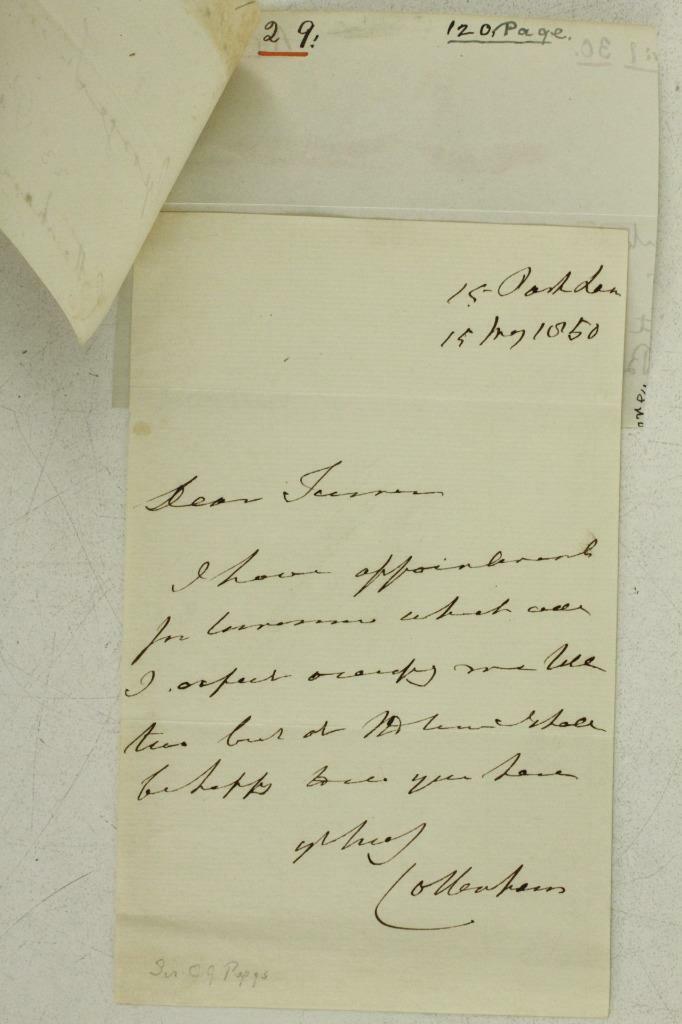 29:
120, Page.
15 Park Lane
15 May 1850
Dear Turner
I have appointments
for tomorrow which will
I expect occupy me till
two but at that time I shall
be happy to see you here
Cottenham
Sir C J Pepys